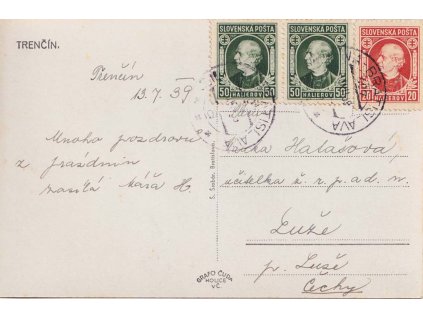 TRENČÍN.
Trenčín
13.7.39
Mnoho pozdravů
z prázdnin
zasílá Mářa H.
SLOVENSKÁ POŠTA
50 HALIEROV 50
SLOVENSKÁ POŠTA
50 HALIEROV 50
SLOVENSKÁ POŠTA
HALIEROV 20
BRATISLAVA
Hatašová,
učitelka v. r. p. ad. n.
Luže
p. Luže
Čechy
GRAFO ČUDA
HOLICE
V Č.